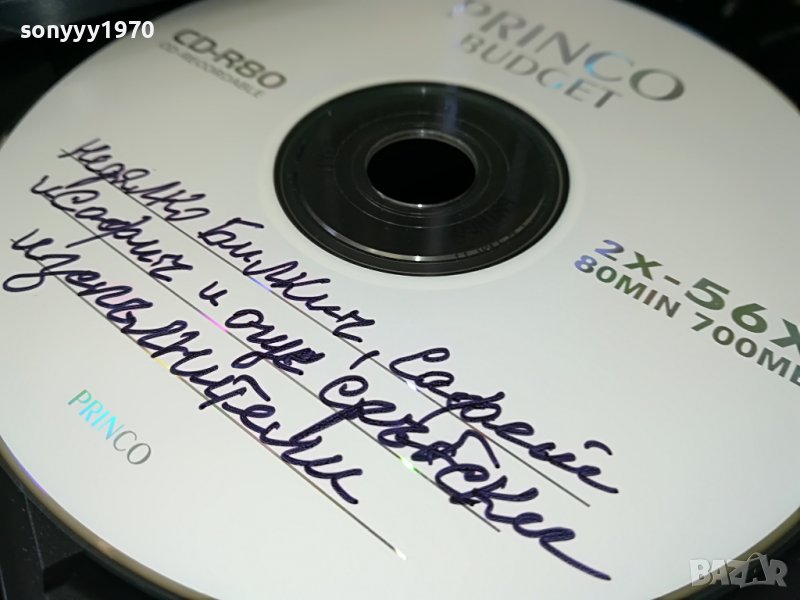 sonyyy1970
PRINCO
BUDGET
CD-R80
CD-RECORDABLE
2X-56X
80MIN 700MB
Недялко Билкич, Сафет
и Сафич и още сръбски
изпълнители
PRINCO
BAZAR